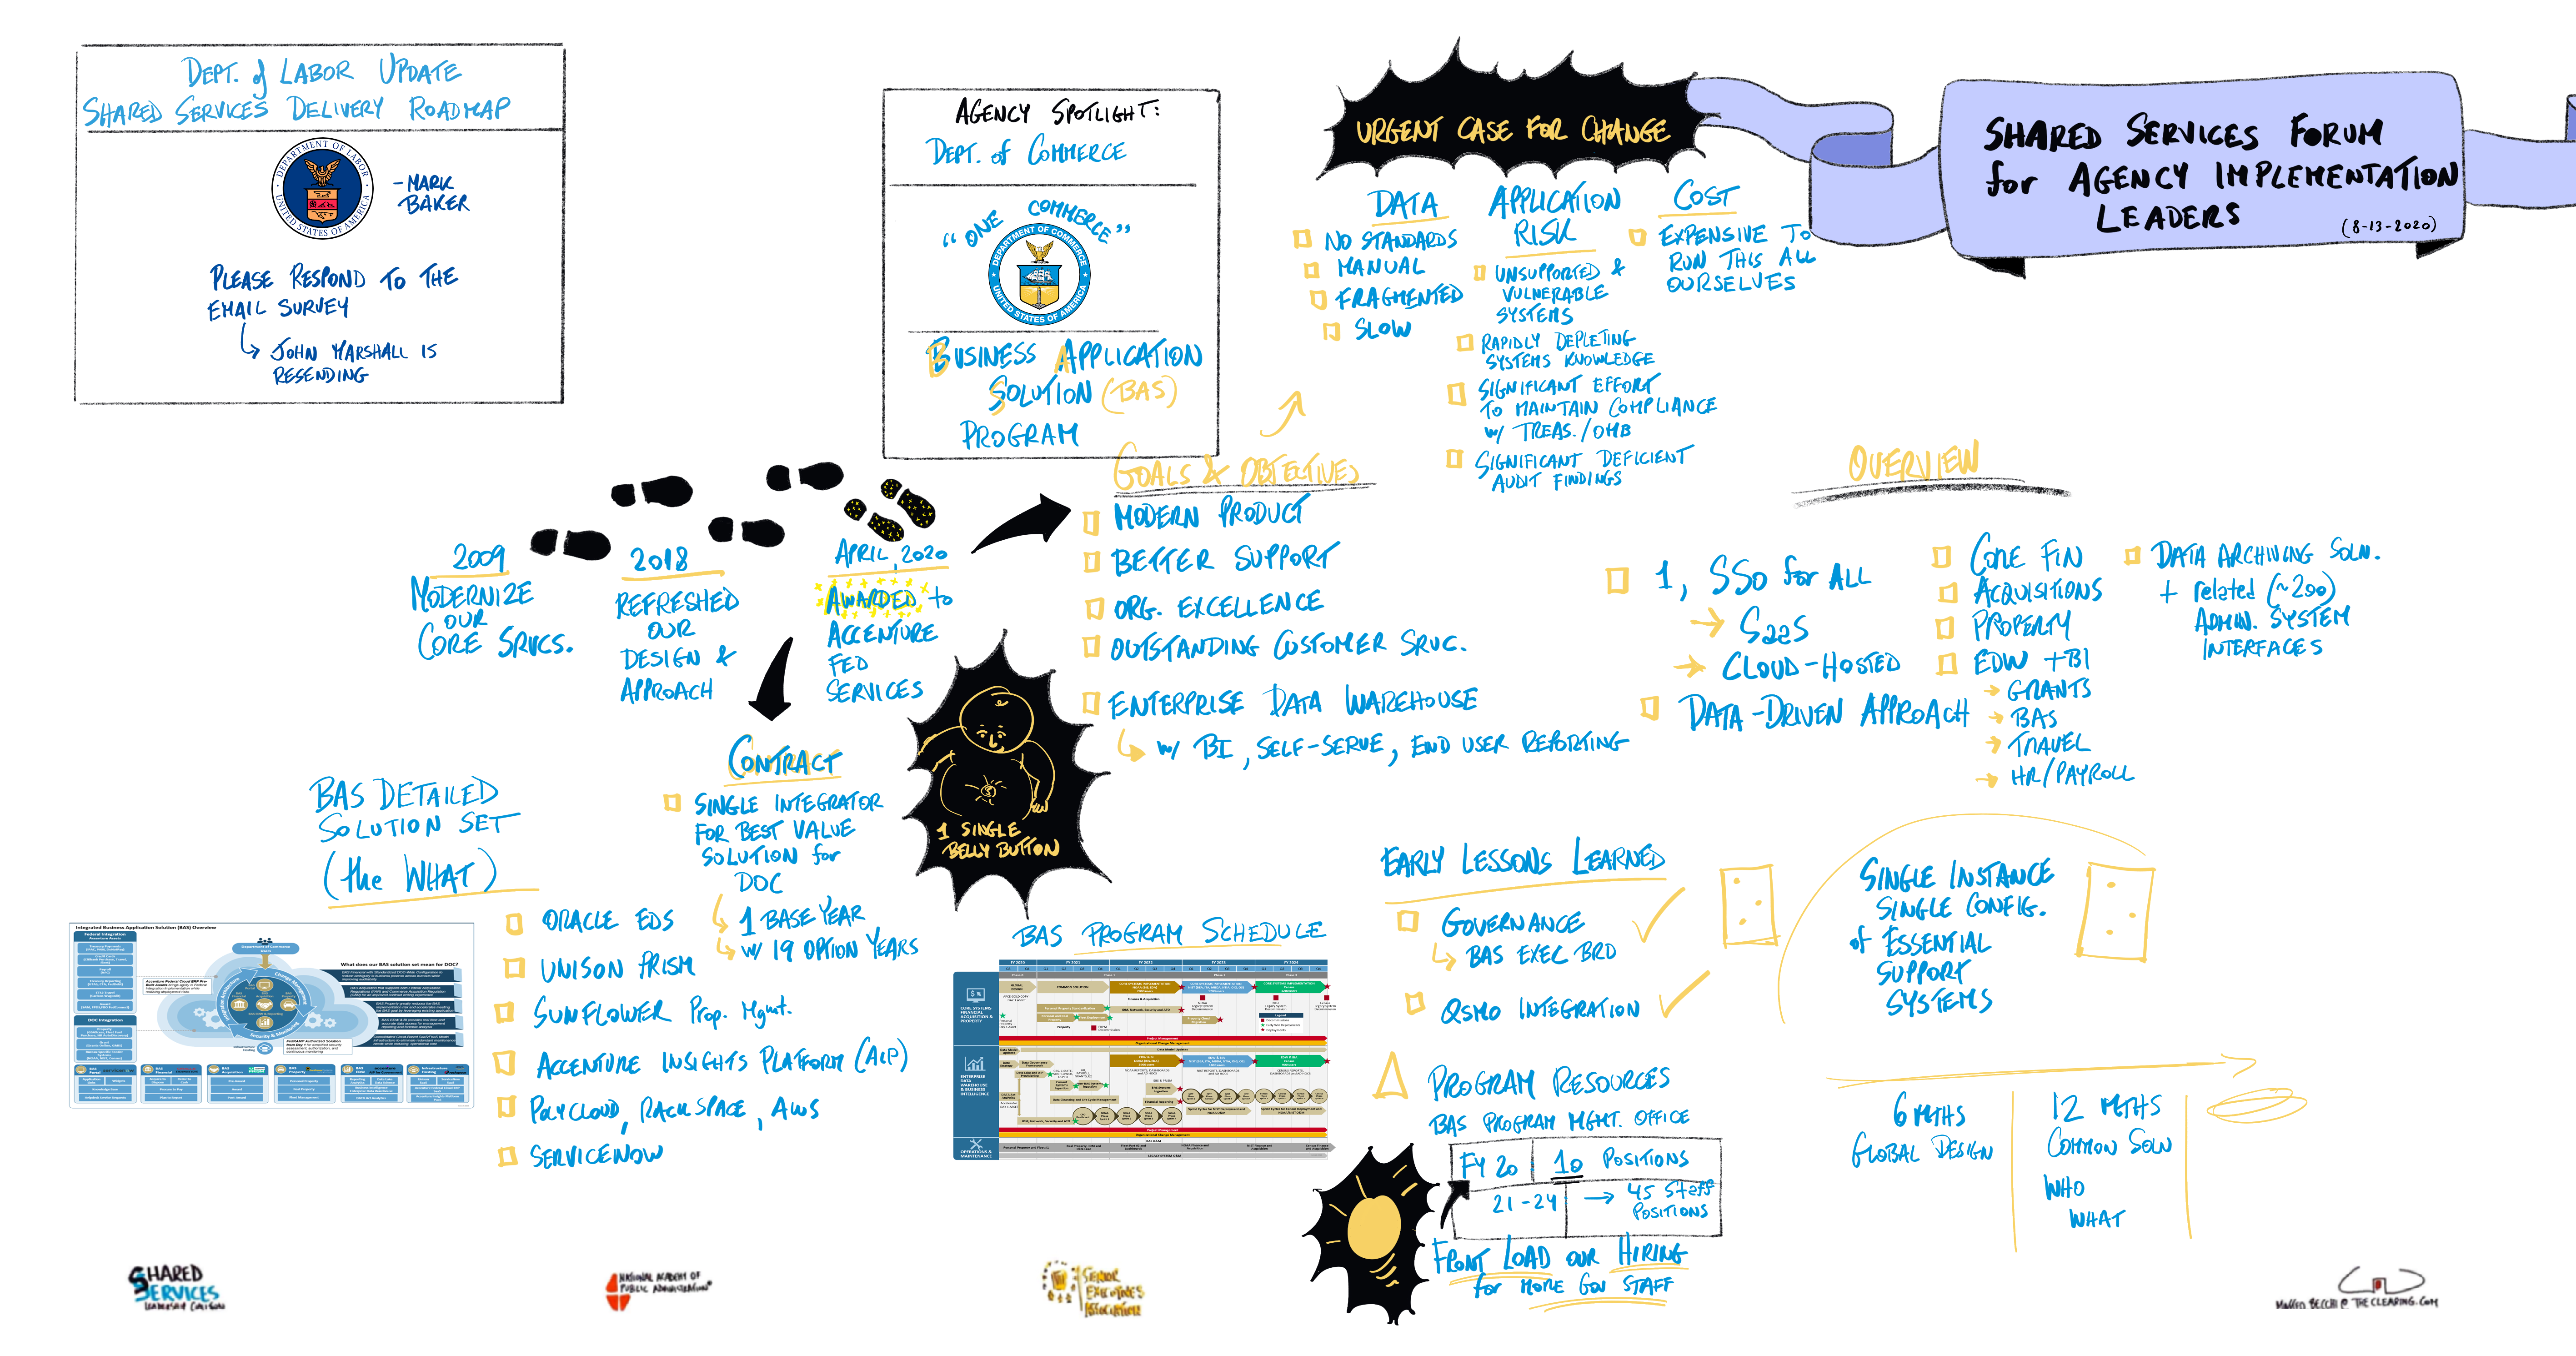 DEPT. of LABOR UPDATE
SHARED SERVICES DELIVERY ROADMAP
DEPARTMENT OF LABOR
UNITED STATES OF AMERICA
- MARK
BAKER
PLEASE RESPOND TO THE
EMAIL SURVEY
JOHN MARSHALL IS
RESENDING
AGENCY SPOTLIGHT:
DEPT. of COMMERCE
"ONE COMMERCE"
DEPARTMENT OF COMMERCE
UNITED STATES OF AMERICA
BUSINESS APPLICATION
SOLUTION (BAS)
PROGRAM
URGENT CASE FOR CHANGE
DATA
NO STANDARDS
MANUAL
FRAGMENTED
SLOW
APPLICATION
RISK
UNSUPPORTED &
VULNERABLE
SYSTEMS
RAPIDLY DEPLETING
SYSTEMS KNOWLEDGE
SIGNIFICANT EFFORT
TO MAINTAIN COMPLIANCE
w/ TREAS./OMB
SIGNIFICANT DEFICIENT
AUDIT FINDINGS
COST
EXPENSIVE TO
RUN THIS ALL
OURSELVES
SHARED SERVICES FORUM
for AGENCY IMPLEMENTATION
LEADERS
(8-13-2020)
2009
MODERNIZE
OUR
CORE SRVCS.
2018
REFRESHED
OUR
DESIGN &
APPROACH
APRIL, 2020
AWARDED to
ACCENTURE
FED
SERVICES
GOALS & OBJECTIVES
MODERN PRODUCT
BETTER SUPPORT
ORG. EXCELLENCE
OUTSTANDING CUSTOMER SRVC.
ENTERPRISE DATA WAREHOUSE
w/ BI, SELF-SERVE, END USER REPORTING
OVERVIEW
1, SSO for ALL
SaaS
CLOUD-HOSTED
DATA-DRIVEN APPROACH
CORE FIN
ACQUISITIONS
PROPERTY
EDW + BI
GRANTS
BAS
TRAVEL
HR/PAYROLL
DATA ARCHIVING SOLN.
+ related (~200)
ADMIN. SYSTEM
INTERFACES
CONTRACT
SINGLE INTEGRATOR
FOR BEST VALUE
SOLUTION for
DOC
1 BASE YEAR
w/ 19 OPTION YEARS
1 SINGLE
BELLY BUTTON
BAS DETAILED
SOLUTION SET
(the WHAT)
Integrated Business Application Solution (BAS) Overview
Federal Integration
DOC Integration
What does our BAS solution set mean for DOC?
ORACLE EDS
UNISON PRISM
SUNFLOWER Prop. Mgmt.
ACCENTURE INSIGHTS PLATFORM (AIP)
POLYCLOUD, RACKSPACE, AWS
SERVICENOW
BAS PROGRAM SCHEDULE
FY 2020 FY 2021 FY 2022 FY 2023 FY 2024
CORE SYSTEMS
FINANCIAL
ACQUISITION &
PROPERTY
Project Management
Organizational Change Management
ENTERPRISE
DATA
WAREHOUSE
& BUSINESS
INTELLIGENCE
Project Management
Organizational Change Management
OPERATIONS &
MAINTENANCE
EARLY LESSONS LEARNED
GOVERNANCE
BAS EXEC BRD
QSMO INTEGRATION
PROGRAM RESOURCES
BAS PROGRAM MGMT. OFFICE
FY 20 10 POSITIONS
21-24 → 45 Staff
POSITIONS
FRONT LOAD OUR HIRING
for MORE GOV STAFF
SINGLE INSTANCE
SINGLE CONFIG.
of ESSENTIAL
SUPPORT
SYSTEMS
6 MTHS
GLOBAL DESIGN
12 MTHS
COMMON SOLN
WHO
WHAT
SHARED
SERVICES
LEADERSHIP COALITION
NATIONAL ACADEMY OF
PUBLIC ADMINISTRATION
SENIOR
EXECUTIVES
ASSOCIATION
MATTEO BECCHI @ THECLEARING.COM